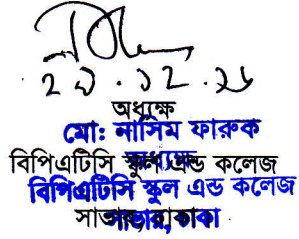 ২৯.১২.২৬
অধ্যক্ষ
মো: নাসিম ফারুক
অধ্যক্ষ
বিপিএটিসি স্কুল এন্ড কলেজ
বিপিএটিসি স্কুল এন্ড কলেজ
সাভার, ঢাকা
সাভার, ঢাকা